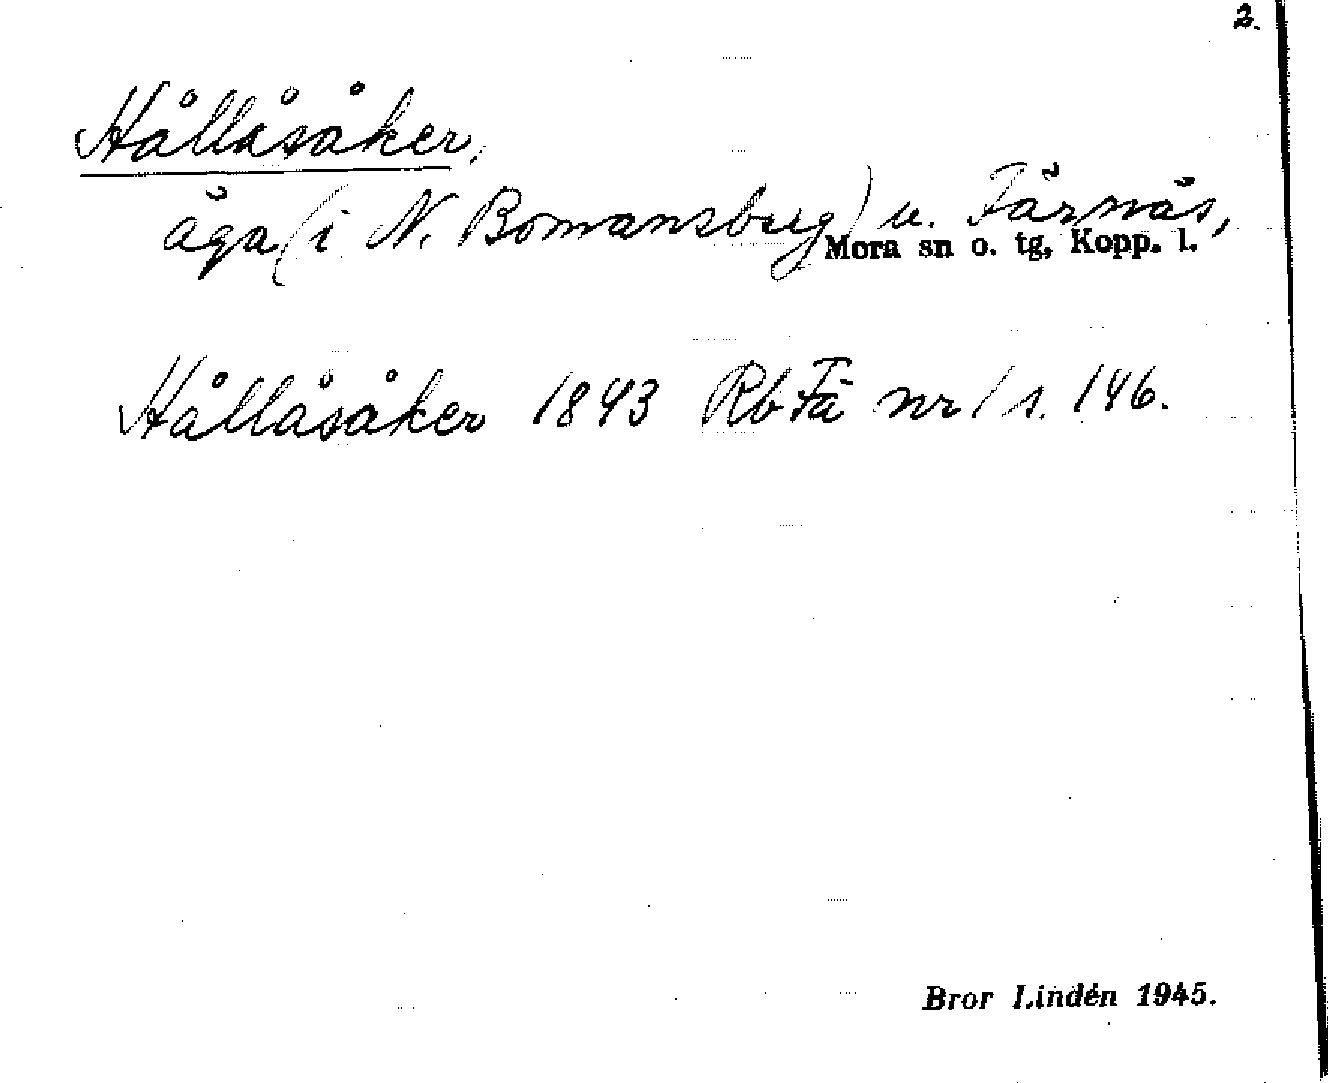 2.
Hållåsåker,
äga (i N. Bomansberg) u. Färnäs,
Mora sn o. tg, Kopp. l.
Hållåsåker 1843 Rb Fä nr 1 s. 146.
Bror Lindén 1945.